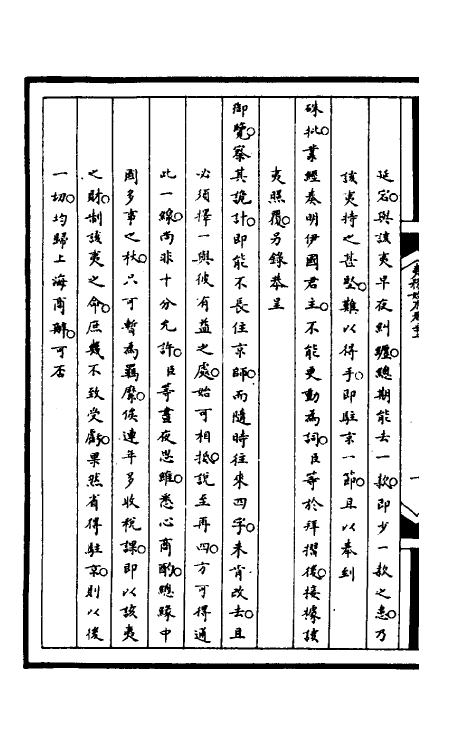 延宕○與該夷早夜糾纏○總期能去一款○即少一款之患○乃
該夷持之甚堅○難以得手○即駐京一節○且以奉到
硃批○業經奏明伊國君主○不能更動為詞○臣等於拜摺後○接據該
夷照覆○另錄恭呈
御覽○察其詭計○即能不長住京師○而隨時往來四字○未肯改去○且
必須擇一與彼有益之處○始可相抵○說至再四○方可得通
此一線○尚非十分允許○臣等晝夜思維○悉心商酌○總緣中
國多事之秋○只可暫為羈縻○俟連年多收稅課○即以該夷
之財○制該夷之命○庶幾不致受虧○果然省得駐京○則以後
一切○均歸上海商辦○可否